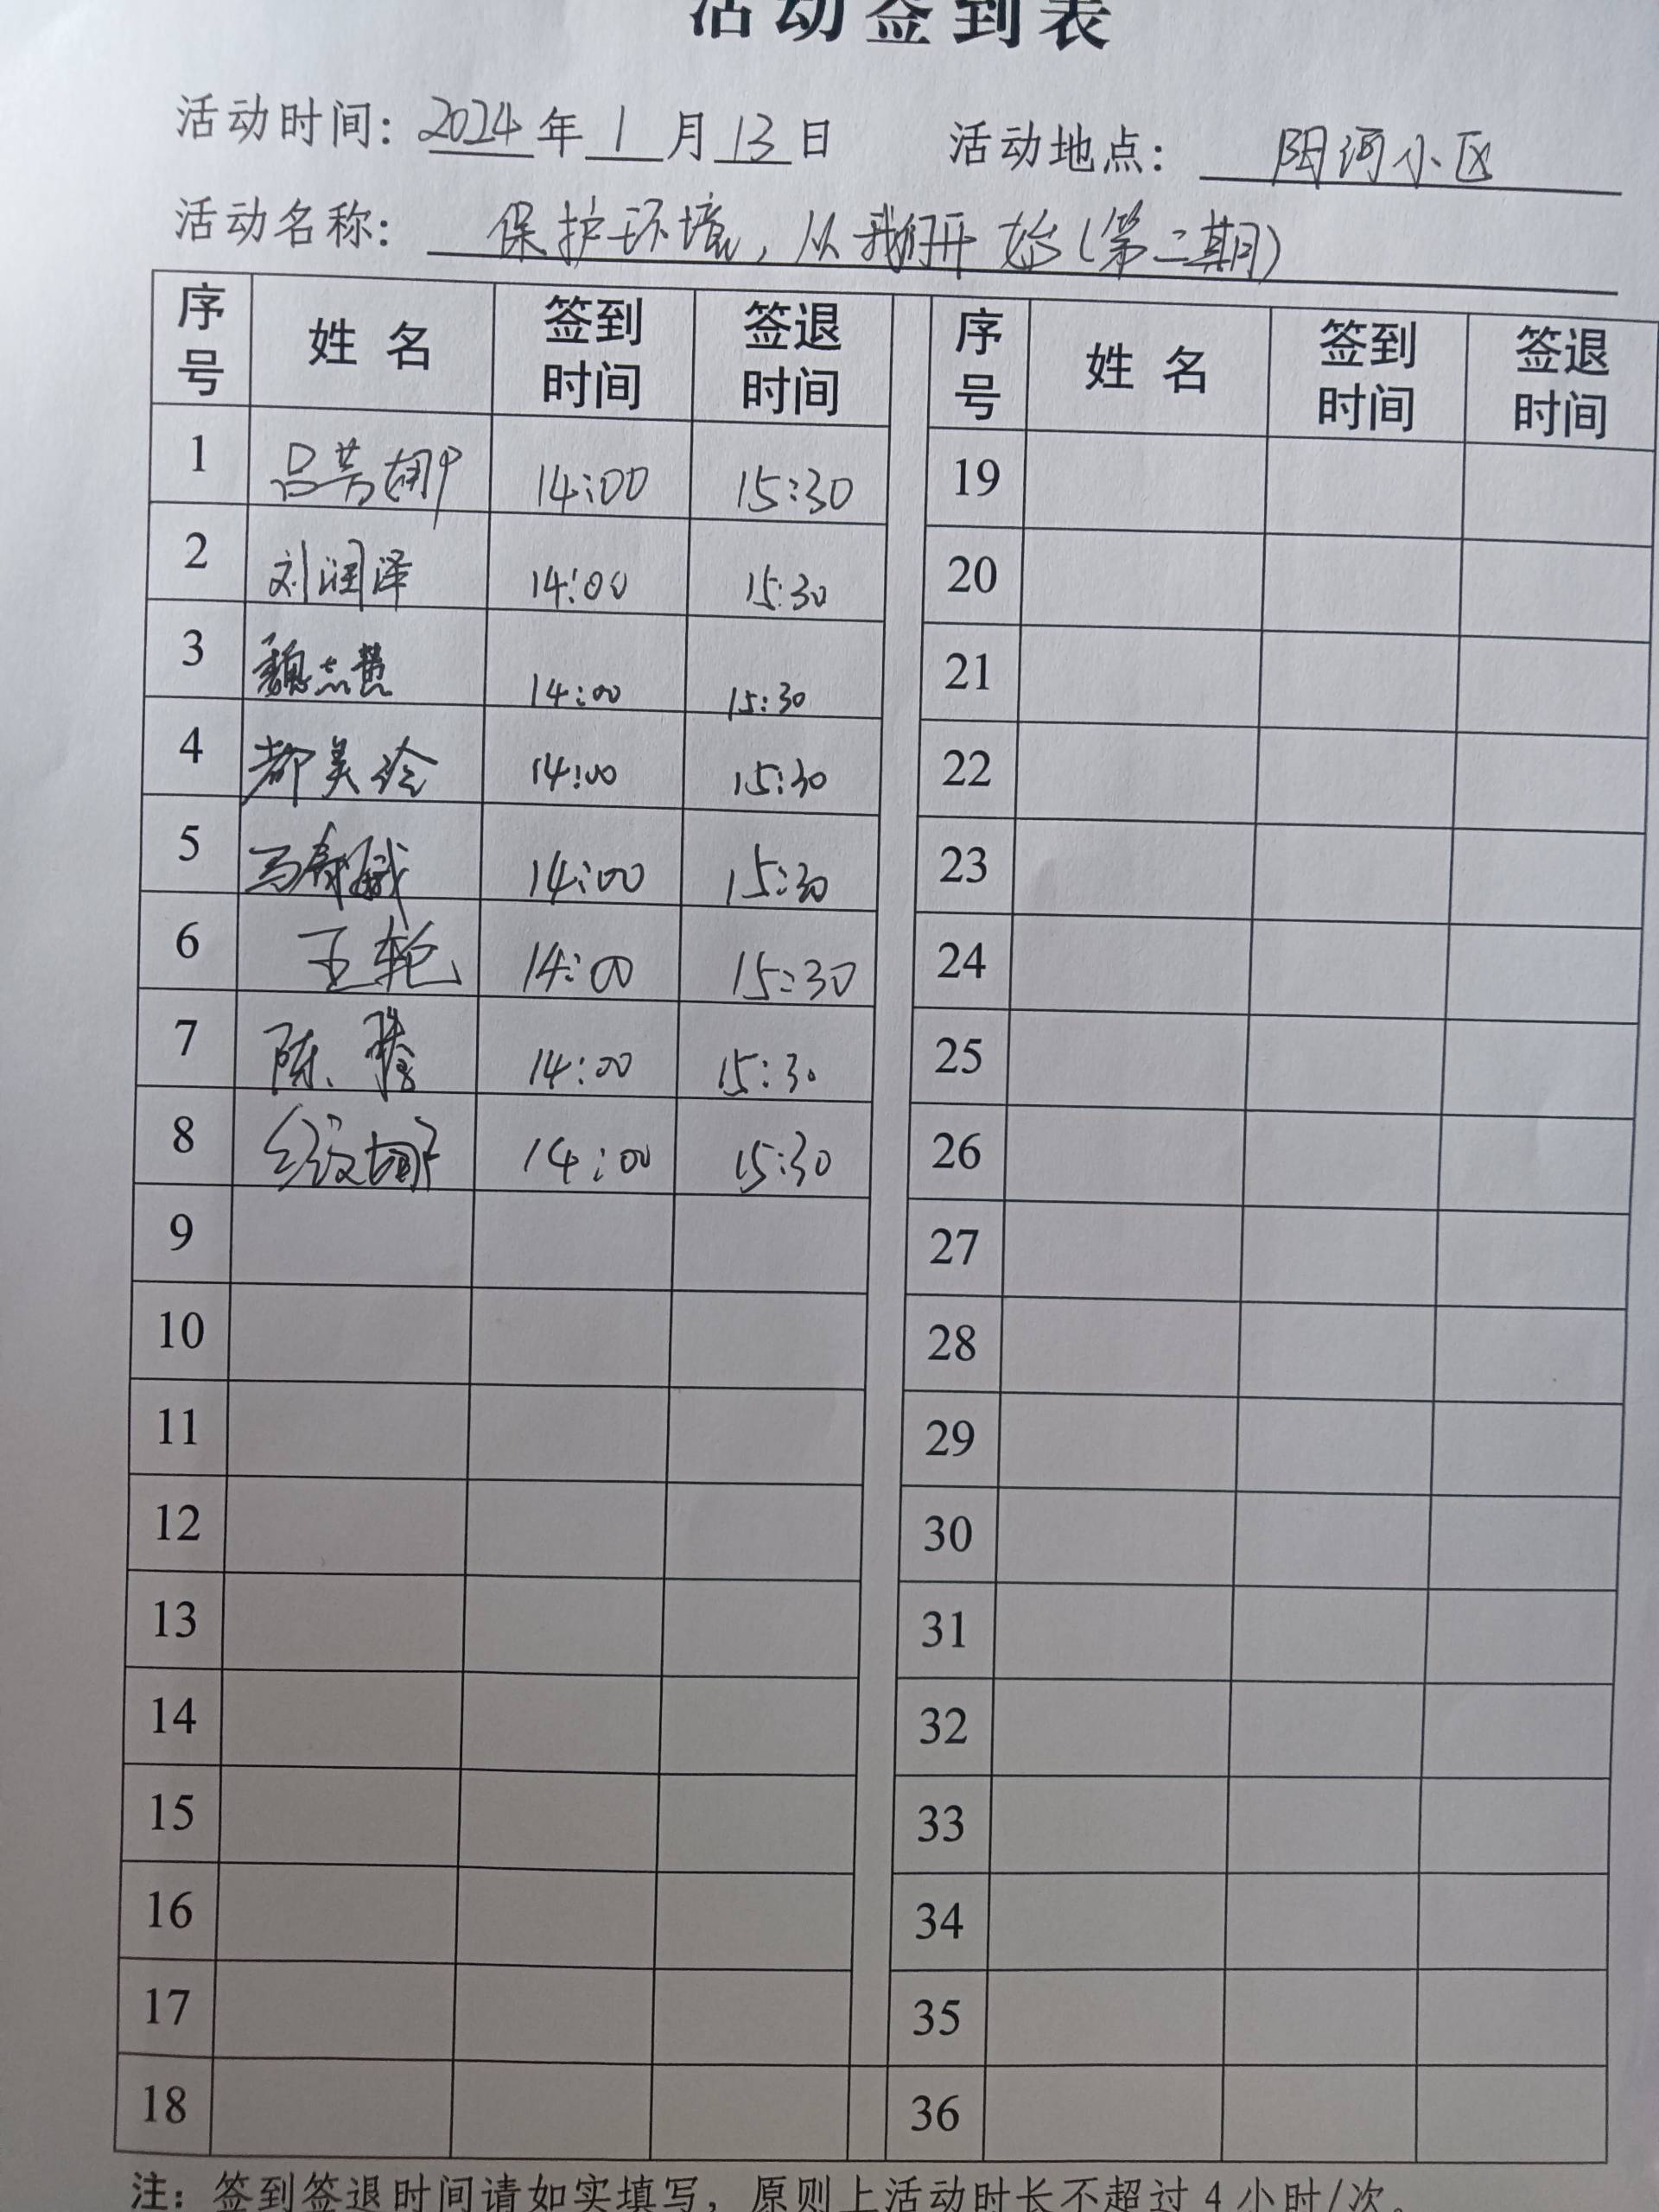 活动签到表
活动时间: 2024年1月13日 活动地点: 阳河小区
活动名称: 保护环境,从我们开始(第二期)
序号 姓名 签到时间 签退时间 序号 姓名 签到时间 签退时间
1 吕芳 14:00 15:30 19
2 刘润泽 14:00 15:30 20
3 魏志慧 14:00 15:30 21
4 都美玲 14:00 15:30 22
5 马 14:00 15:30 23
6 王艳 14:00 15:30 24
7 陈 14:00 15:30 25
8 14:00 15:30 26
9 27
10 28
11 29
12 30
13 31
14 32
15 33
16 34
17 35
18 36
注: 签到签退时间请如实填写,原则上活动时长不超过4小时/次。